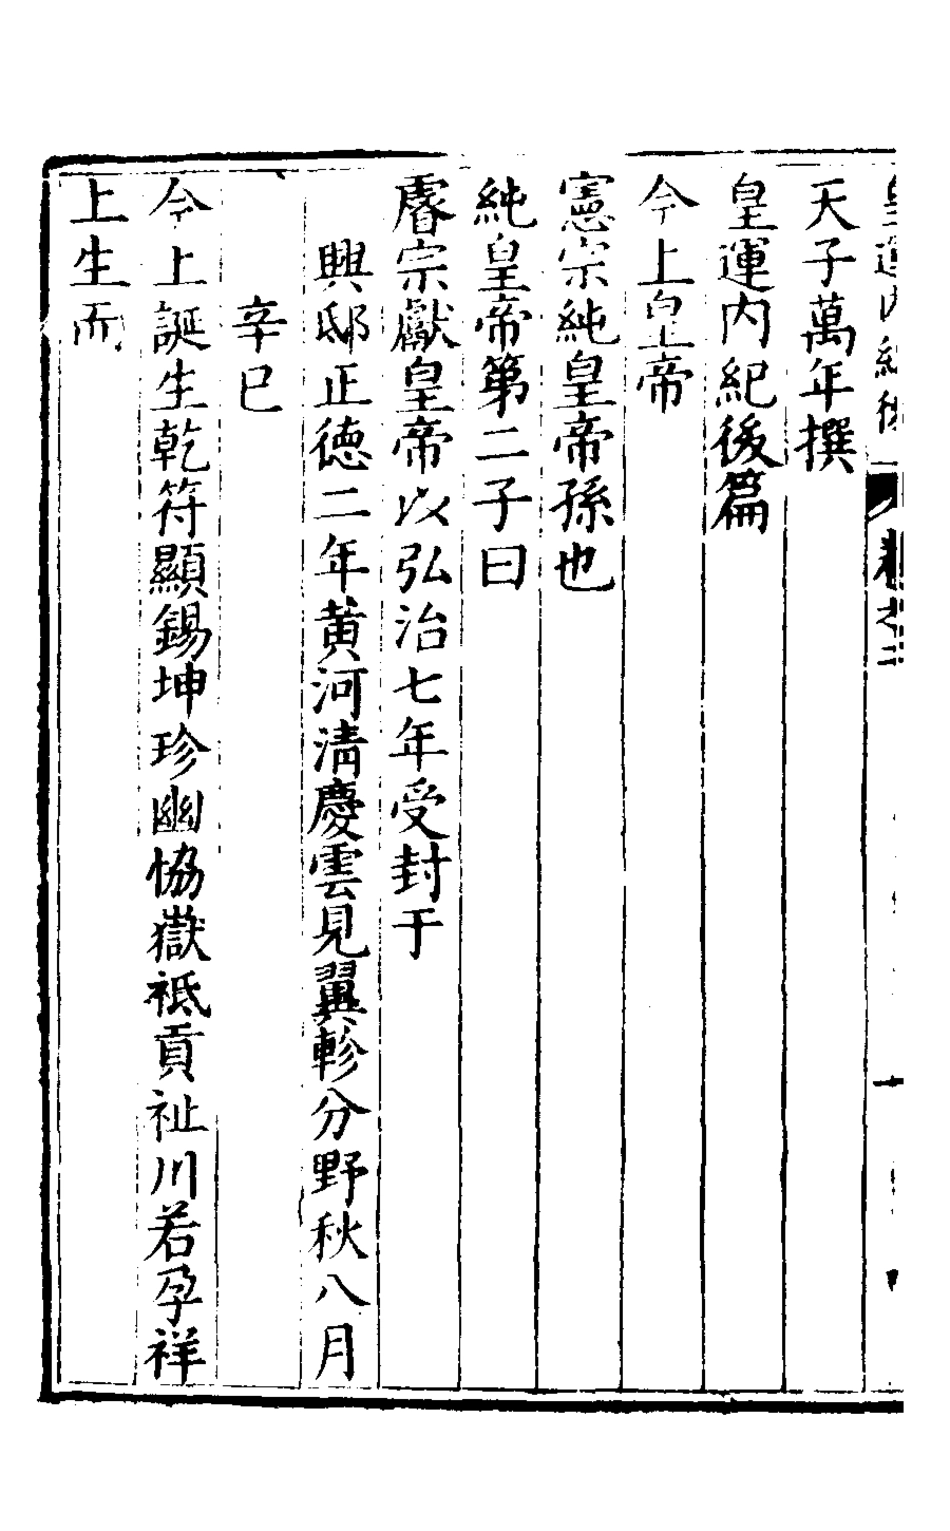 皇運内紀後
卷之二
天子萬年撰
皇運内紀後篇
今上皇帝
憲宗純皇帝孫也
純皇帝第二子曰
睿宗獻皇帝以弘治七年受封于
興邸正德二年黃河清慶雲見翼軫分野秋八月
辛巳
今上誕生乾符顯錫坤珍幽協嶽祗貢祉川若孕祥
上生而